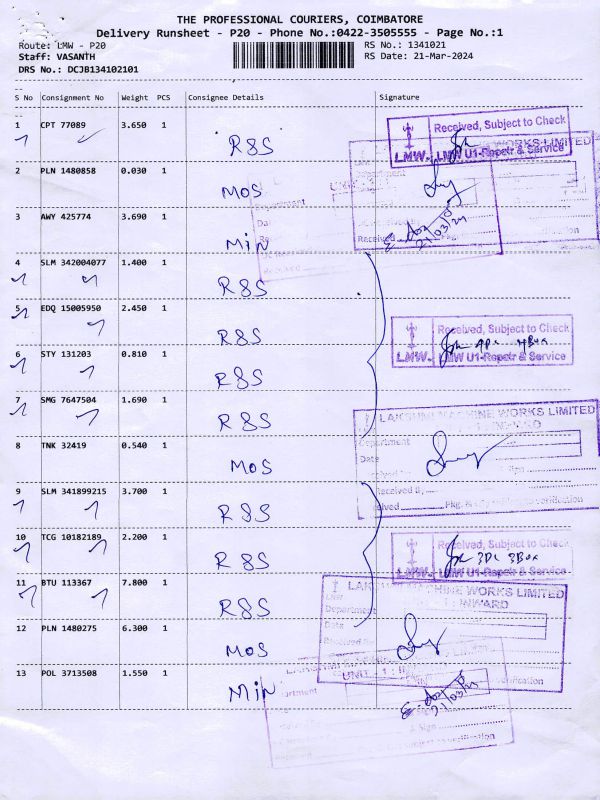 THE PROFESSIONAL COURIERS, COIMBATORE
Delivery Runsheet - P20 - Phone No.:0422-3505555 - Page No.:1
Route: LMW - P20
RS No.: 1341021
Staff: VASANTH
RS Date: 21-Mar-2024
DRS No.: DCJB134102101
S No Consignment No Weight PCS Consignee Details Signature
1 CPT 77089 3.650 1 R&S
Received, Subject to Check
LMW. LMW U1-Repair & Service
2 PLN 1480858 0.030 1 MOS
3 AWY 425774 3.690 1 MIN
21/03/24
4 SLM 342004077 1.400 1 R&S
5 EDQ 15005950 2.450 1 R&S
Received, Subject to Check
4Box
LMW. LMW U1-Repair & Service
6 STY 131203 0.810 1 R&S
7 SMG 7647504 1.690 1 R&S
LAKSHMI MACHINE WORKS LIMITED
INWARD
Department
Date
8 TNK 32419 0.540 1 MOS
Received By
Pkg. verification
9 SLM 341899215 3.700 1 R&S
10 TCG 10182189 2.200 1 R&S
Received, Subject to Check
3Box
LMW. LMW U1-Repair & Service
11 BTU 113367 7.800 1 R&S
LAKSHMI MACHINE WORKS LIMITED
INWARD
Department
Date
12 PLN 1480275 6.300 1 MOS
13 POL 3713508 1.550 1 MIN
verification